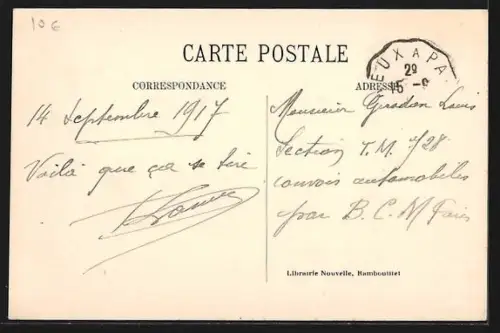 10€
CARTE POSTALE
CORRESPONDANCE
ADRESSE
EUX A PA
2º
15 -9
14 Septembre 1917
Voilà que ça se tire
Monsieur Giraudon Louis
Section T.M. 728
convois automobiles
par B.C.M Paris
Librairie Nouvelle, Rambouillet